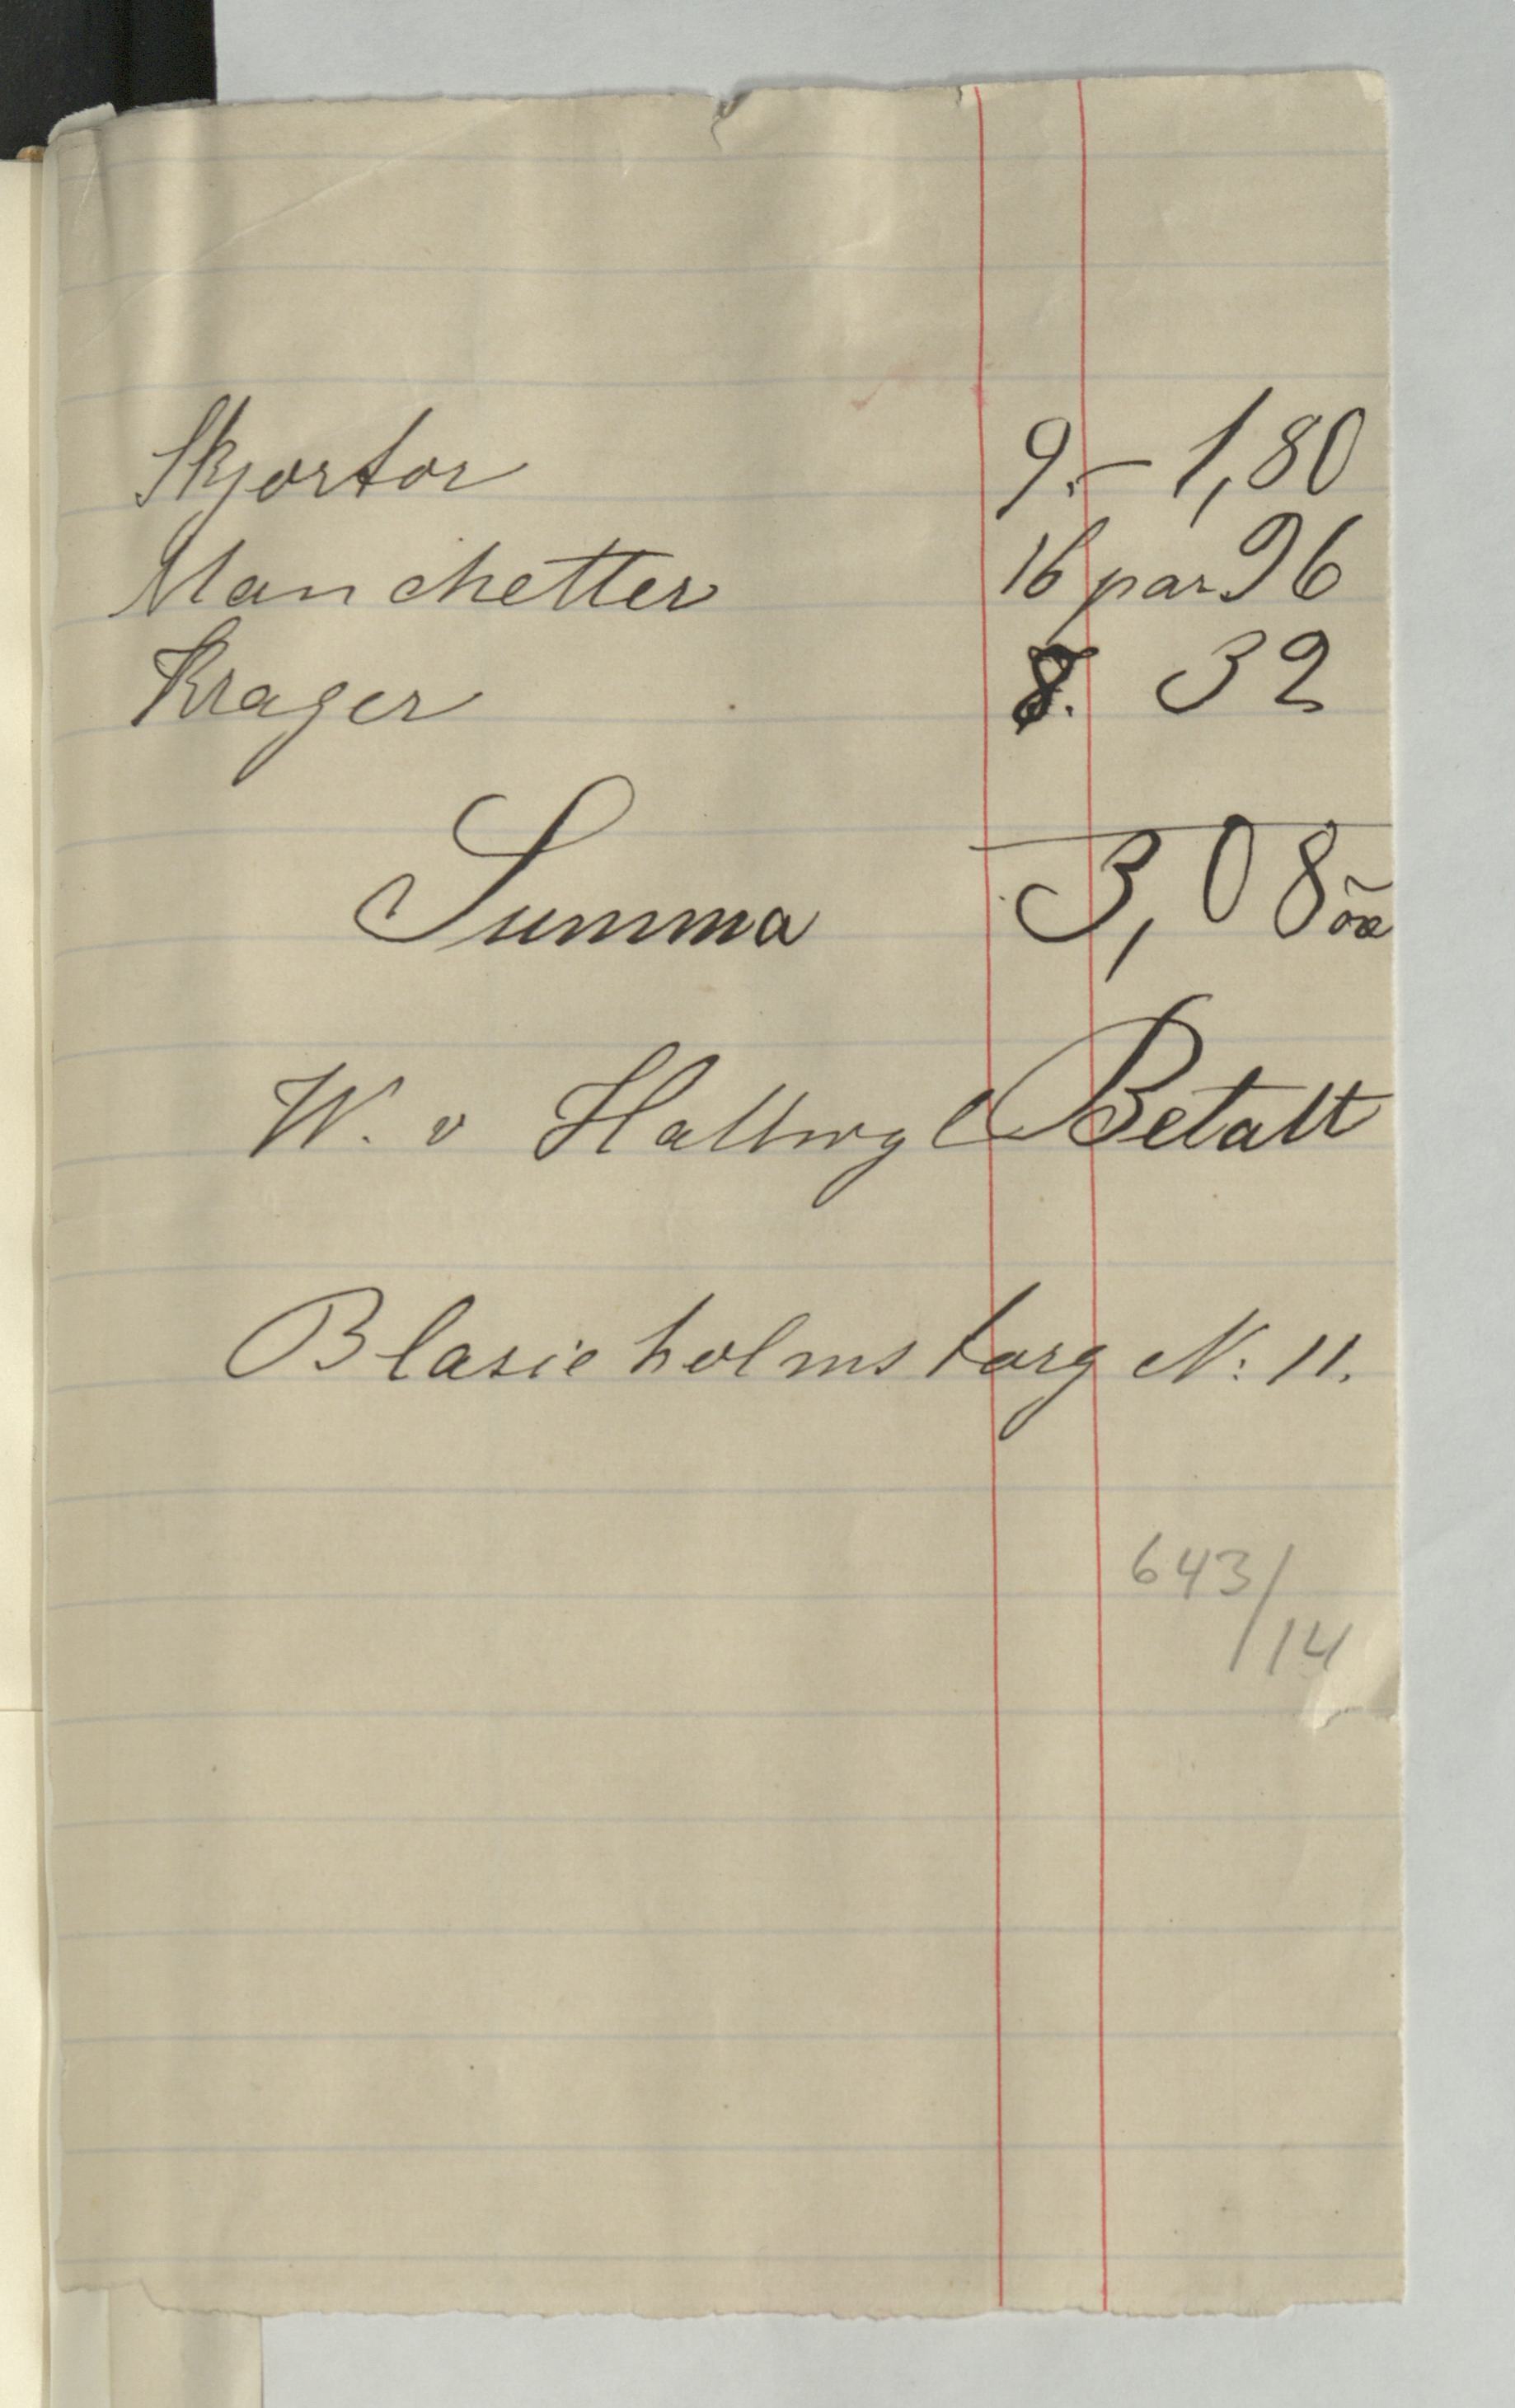 Skjortor 9.– 1,80
Manchetter 16 par 96
Krager 8. 32
Summa 3,08 öre
W. v Hallwyl Betalt
Blasieholmstorg N: 11.
643/
14